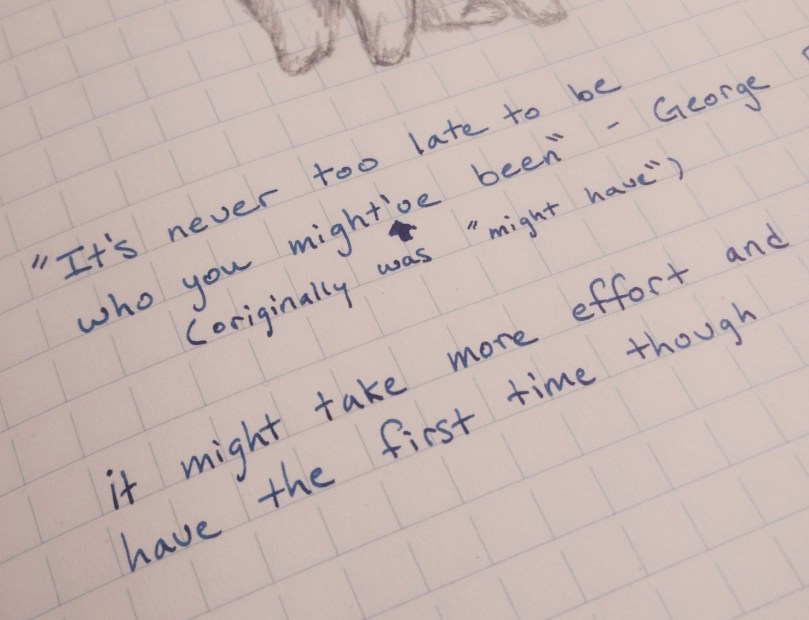 "It's never too late to be
who you might've been" - George
(originally was "might have")
it might take more effort and
have the first time though